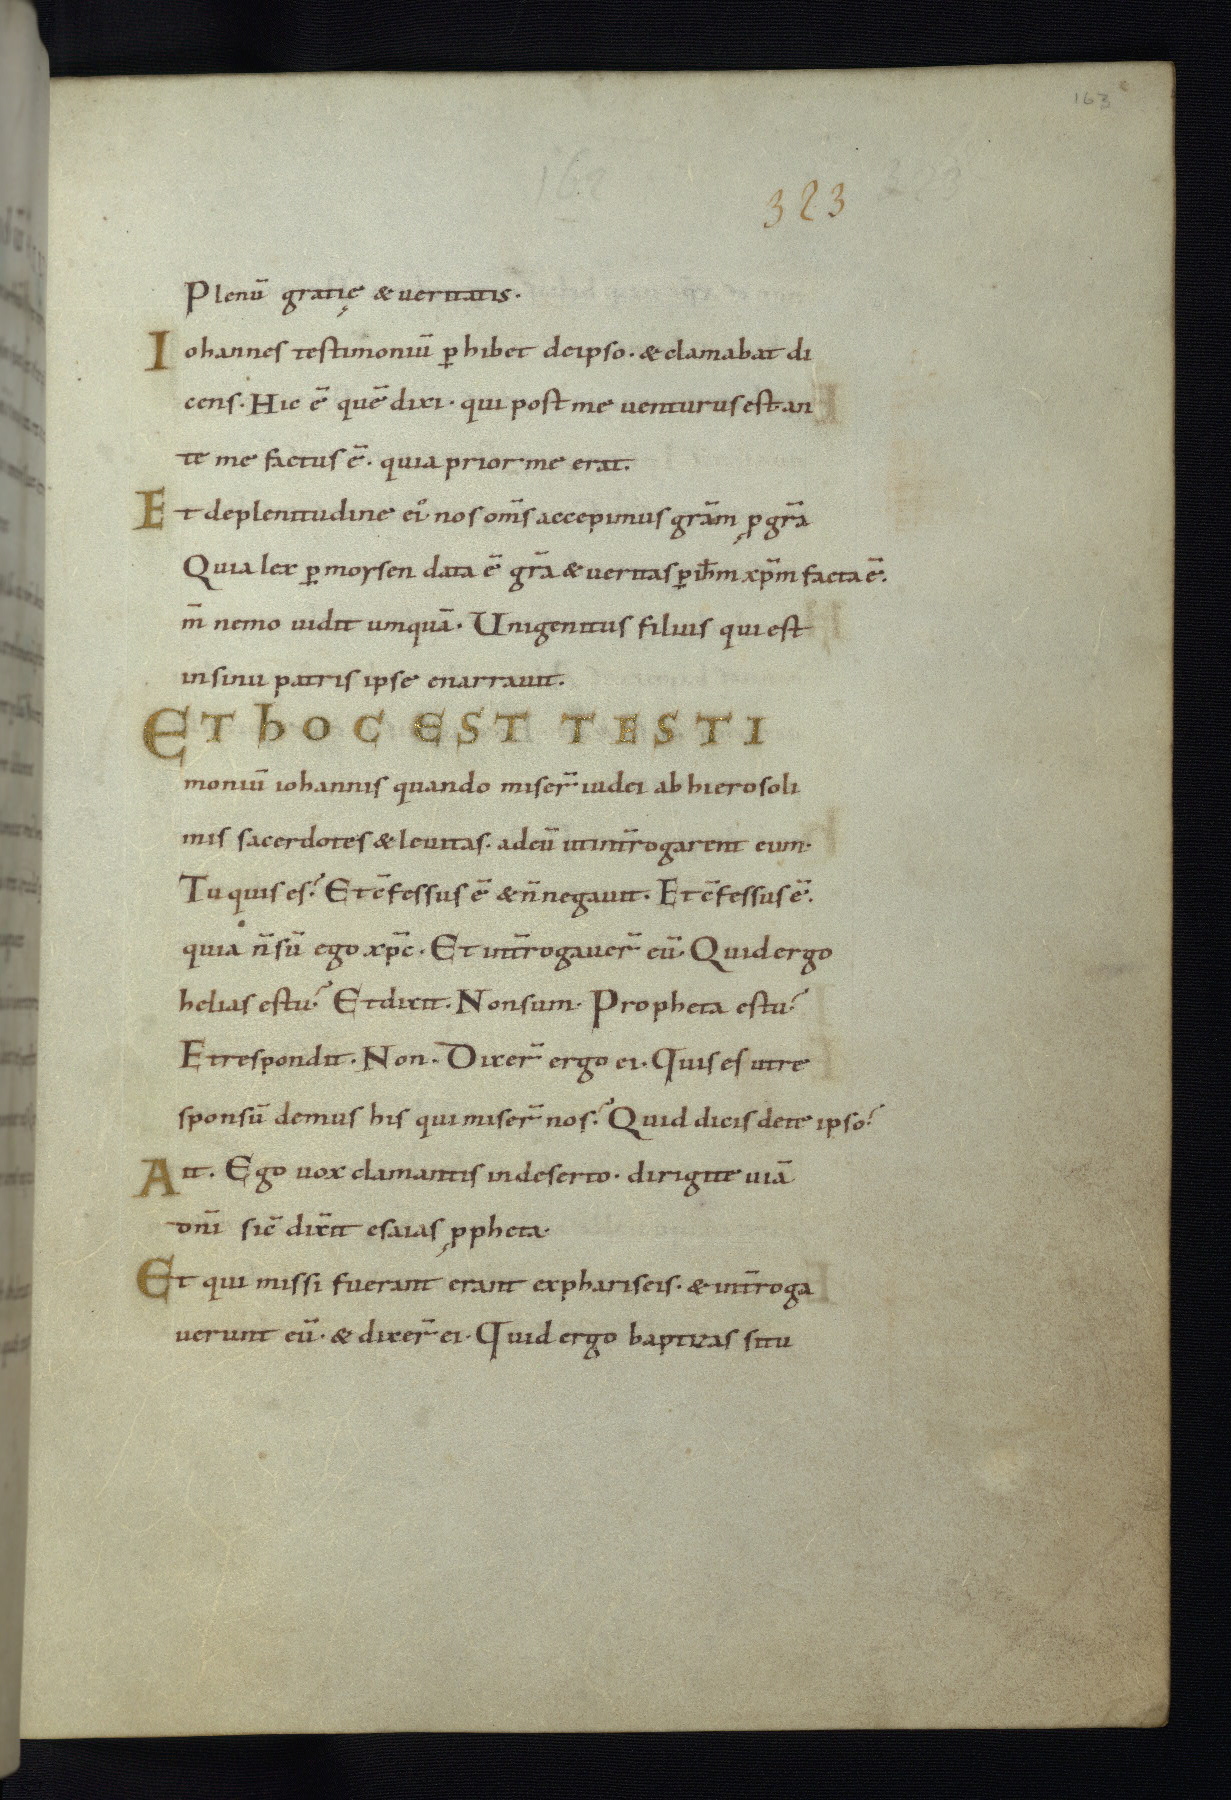 163
323
Plenū gratię & ueritatis.
Iohannes testimoniū ꝑhibet deipso. & clamabat di
cens. Hic ē quē dixi. qui post me uenturus est. an
te me factus ē. quia prior me erat.
Et deplenitudine ei' nos om̄s accepimus grām ꝓ grā
Quia lex ꝑ moysen data ē grā & ueritas ꝑ ih̄m xp̄m facta ē.
m̄ nemo uidit umquā. Unigenitus filius qui est
insinu patris ipse enarrauit.
ET hOC EST TESTI
moniū iohannis quando miser̄ iudei ab hierosoli
mis sacerdotes & leuitas. adeū utint̄rogarent eum.
Tu quis es? Et c̄fessus ē & n̄ negauit. Et c̄fessus ē.
quia n̄ sū ego xp̄c. Et int̄rogauer̄ eū. Quid ergo
helias estu? Et dixit. Non sum. Propheta estu?
Et respondit. Non. Dixer̄ ergo ei. Quis es utre
sponsū demus his qui miser̄ nos? Quid dicis dete ipso?
Ait. Ego uox clamantis indeserto. dirigite uiā
dn̄i sic̄ dix̄it esaias ꝓpheta.
Et qui missi fuerant erant exphariseis. & int̄roga
uerunt eū. & dixer̄ ei. Quid ergo baptizas situ